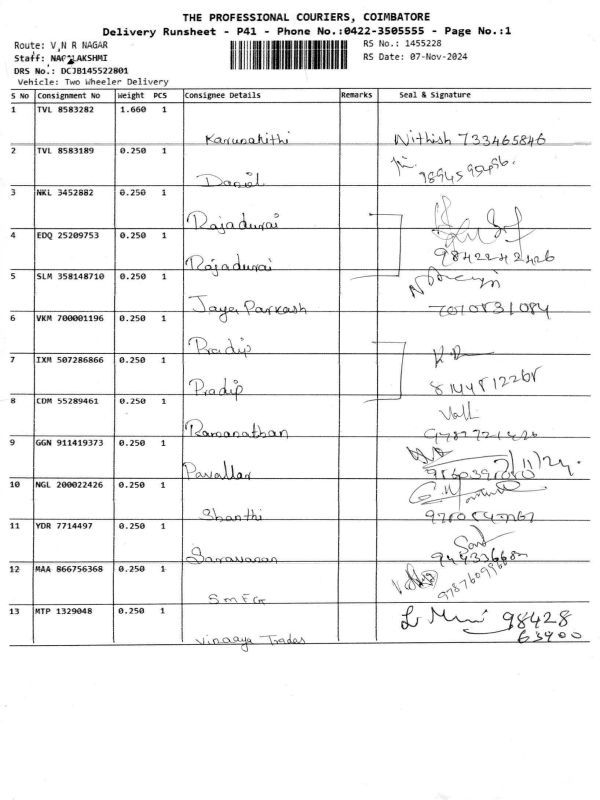 THE PROFESSIONAL COURIERS, COIMBATORE
Delivery Runsheet - P41 - Phone No.:0422-3505555 - Page No.:1
Route: V,N R NAGAR
RS No.: 1455228
Staff:
RS Date: 07-Nov-2024
DRS No.: DCJB145522801
Vehicle: Two Wheeler Delivery
S No Consignment No Weight PCS Consignee Details Remarks Seal & Signature
1 TVL 8583282 1.660 1
Karunakithi Nithish 733465846
2 TVL 8583189 0.250 1
3 NKL 3452882 0.250 1
Rajadurai
4 EDQ 25209753 0.250 1
Rajadurai 9842242426
5 SLM 358148710 0.250 1
Jaya Parkash 7010831084
6 VKM 700001196 0.250 1
Pradip
7 IXM 507286866 0.250 1
Pradip
8 CDM 55289461 0.250 1
Ramanathan
9 GGN 911419373 0.250 1
7/11/24.
Pavallar
10 NGL 200022426 0.250 1
Shanthi
11 YDR 7714497 0.250 1
Saravanan
12 MAA 866756368 0.250 1
SMFG
13 MTP 1329048 0.250 1
98428
Vinaaya Trades 63900